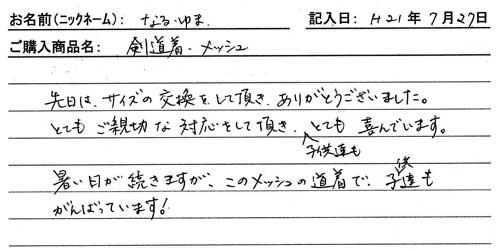 お名前(ニックネーム): なる・ゆま 記入日: H21年7月27日
ご購入商品名: 剣道着・メッシュ
先日は、サイズの交換をして頂き、ありがとうございました。
とてもご親切な対応をして頂き、子供達もとても喜んでいます。
暑い日が続きますが、このメッシュの道着で、子供達も
がんばっています!